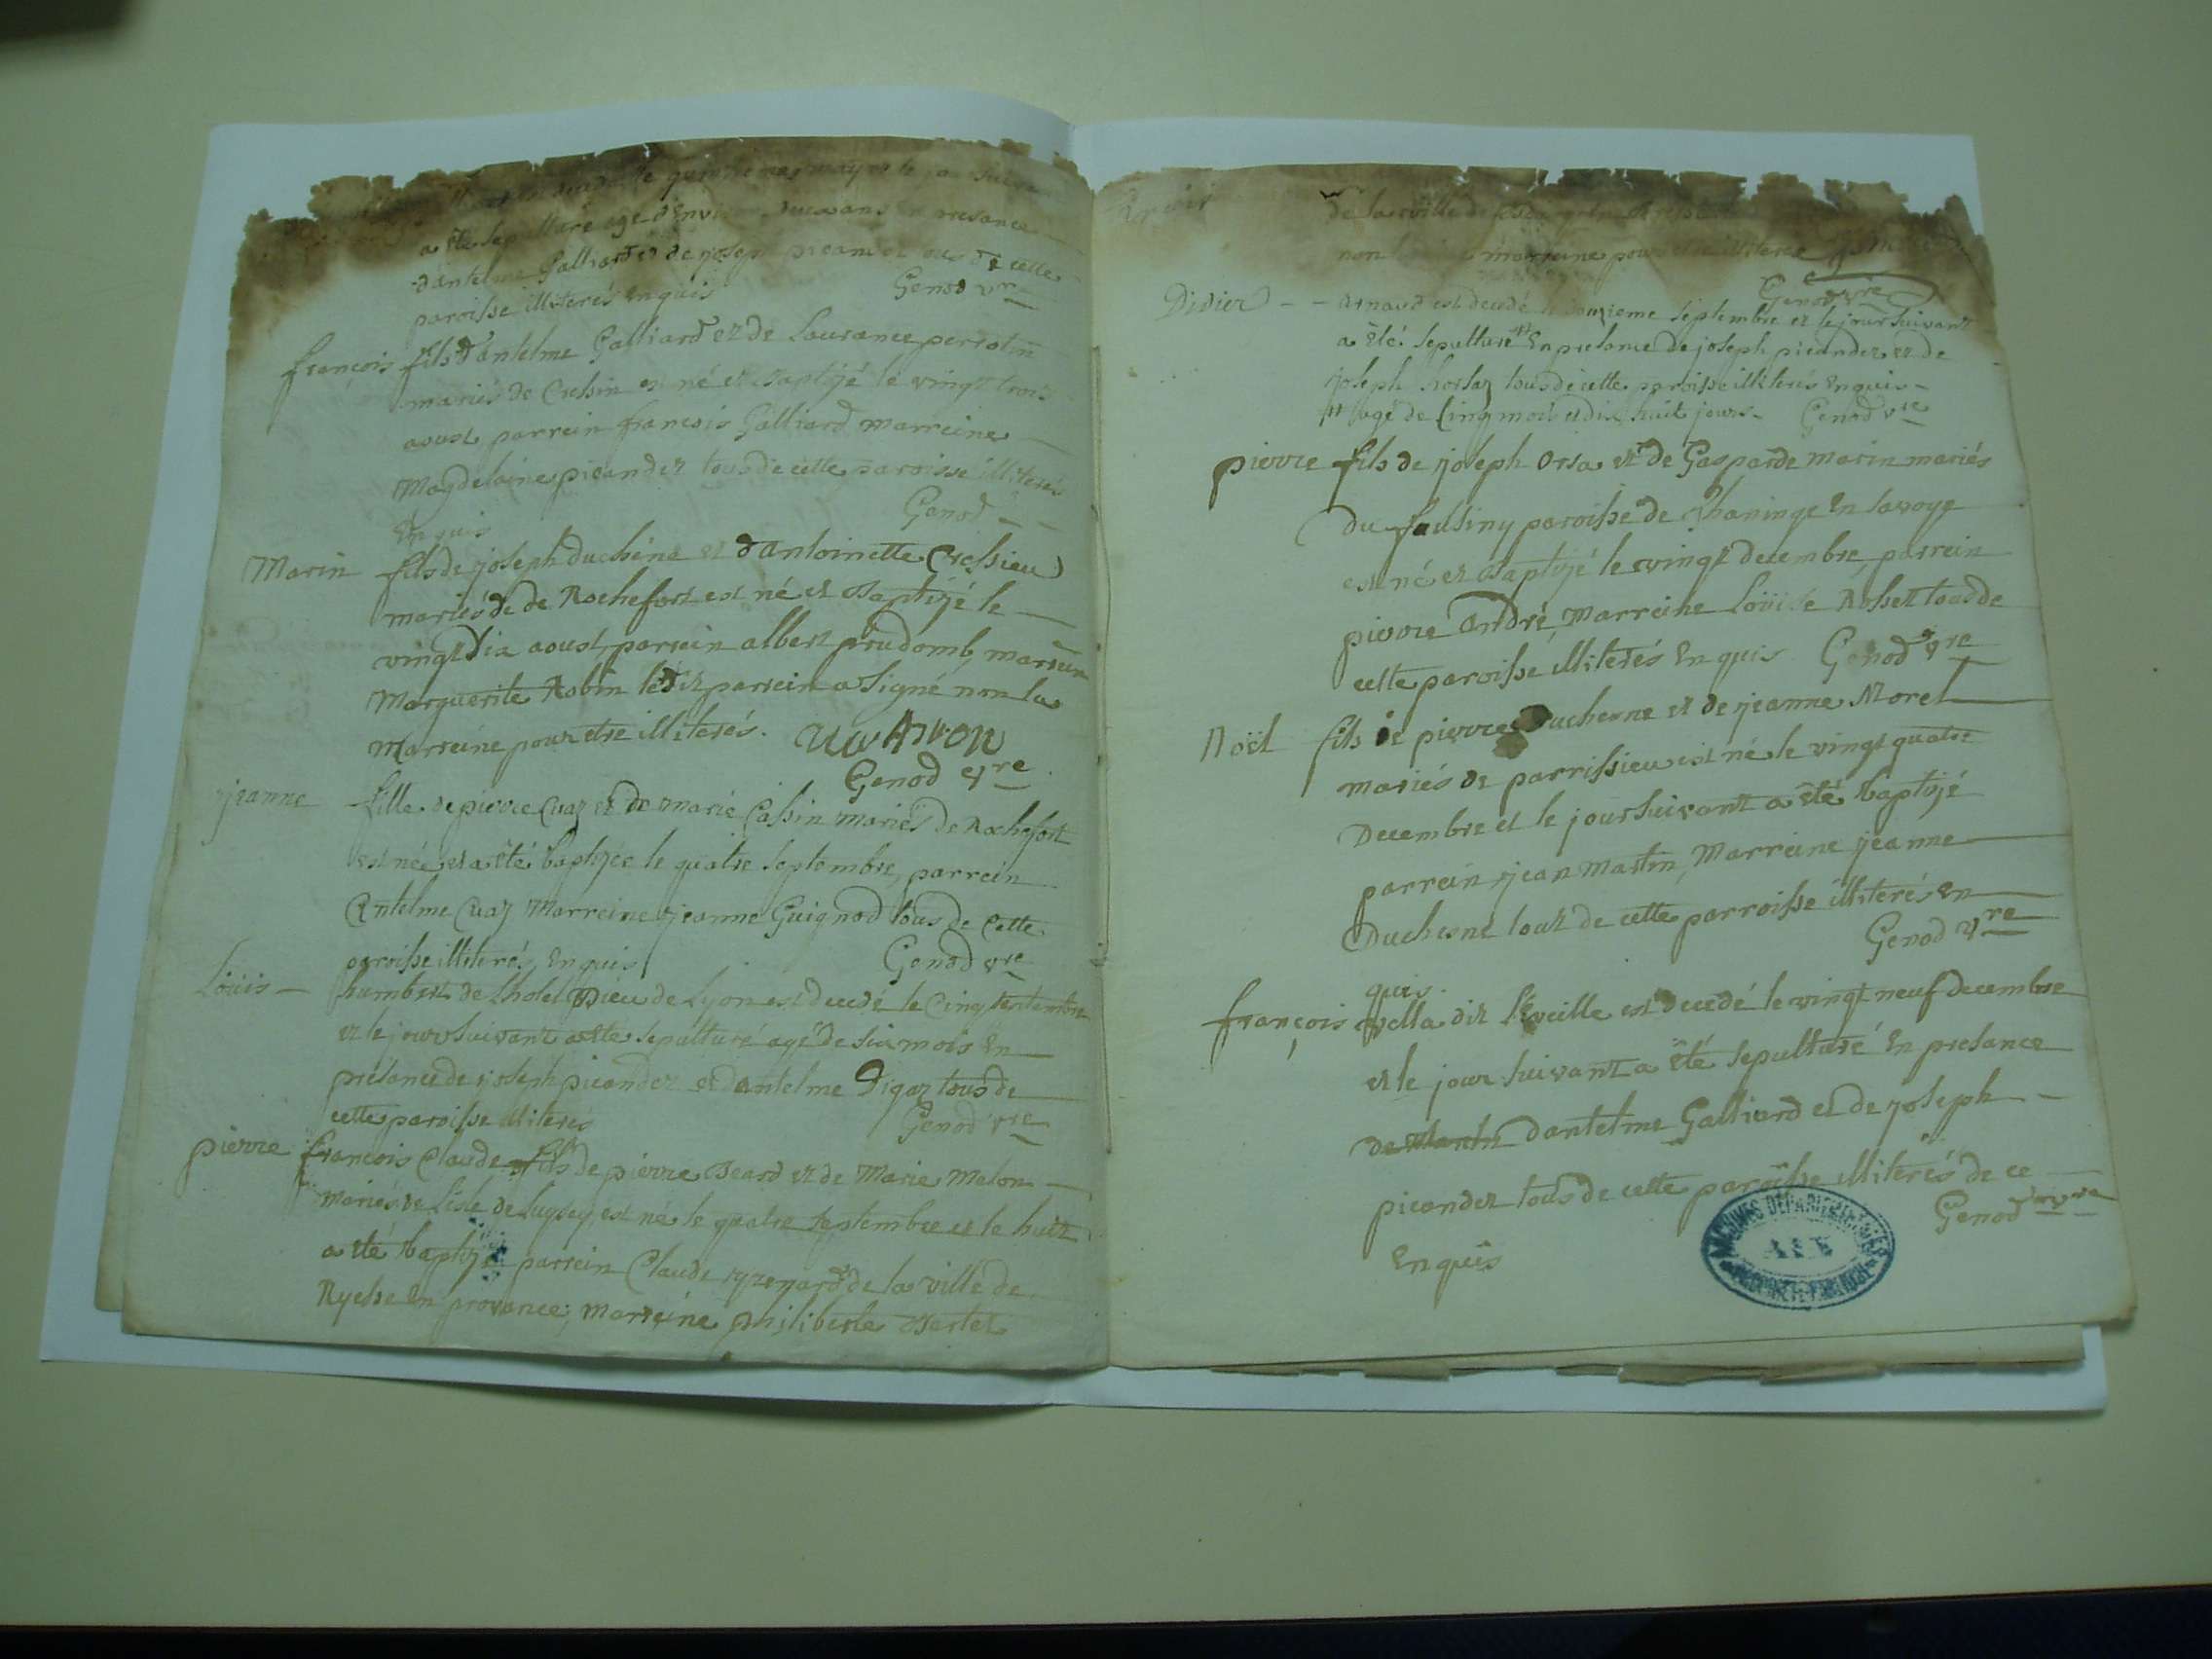 est decedé le quinzieme may et le jour suivant
a été sepulturé agé d'environ deux ans en presance
dantelme Galliard et de joseph picandet tous de cette
paroisse illiterés enquis Genod vre
françois fils d'antelme Galliard et de Laurance perrotin
mariés de Cressin est né et Baptizé le vingt trois
aoust parrein francois Galliard marreine
Magdelaine picandet tous de cette paroisse illiterés
Enquis Genod
Marin fils de joseph duchêne et d'Antoinette Cressieu
mariés de de Rochefort est né et Baptizé le
vingt dix aoust, parrein albert prudomb, marreine
Marguerite Robin ledit parrein a signé non la
Marreine pour etre illiterés.
Genod vre
jeanne fille de pierre Cuaz et de marie Cassin mariés de Rochefort
est née et a été baptizée le quatre septembre, parrein
Antelme Cuaz Marreine jeanne Guignod tous de Cette
paroisse illiterés, Enquis Genod vre
Loüis humbert de Lhotel Dieu de Lyon est decedé le Cinq septembre
et le jour suivant a eté sepulturé agé de six mois En
présance de joseph picandet et dantelme Digaz tous de
cette paroisse illiterés Genod vre
pierre francois Claude fils de pierre Beard et de Marie Melon
mariés de Lisle de lugey, est né le quatre septembre et le huit
a été baptizé parrein Claude de la ville de
Ryesse En provance; marreine philiberte Bertet
de la ville de
non marreine pour etre illiteree
Genod vre
Didier Arnaud est decedé le douzieme septembre et le jour suivant
a été sepulturé # En presance de joseph picandet et de
joseph tous de cette paroisse illiterés Enquis
# agé de Cinq mois et dix huit jours. Genod vre
pierre fils de joseph Orsa et de Gasparde marin mariés
du faussiny paroisse de Thaninge En savoye
est né et Baptizé le vingt decembre, parrein
pierre André, Marreine Loüise Rosset tous de
cette paroisse illiterés Enquis Genod vre
Noël fils de pierre Duchesne et de jeanne Morel
mariés de parrissieu est né le vingt quatre
Decembre et le jour suivant a été baptizé
parrein jean Martin, Marreine jeanne
Duchesne tout de cette parroisse illiterés En
quis. Genod vre
françois vella dit L'éveille est decedé le vingt neuf decembre
et le jour suivant a été sepulturé En presance
de Martin dantelme Galliard et de joseph
picandet tous de cette paroisse illiterés de ce
Enquis Genod vre
ARCHIVES DÉPARTEMENTALES
AIN